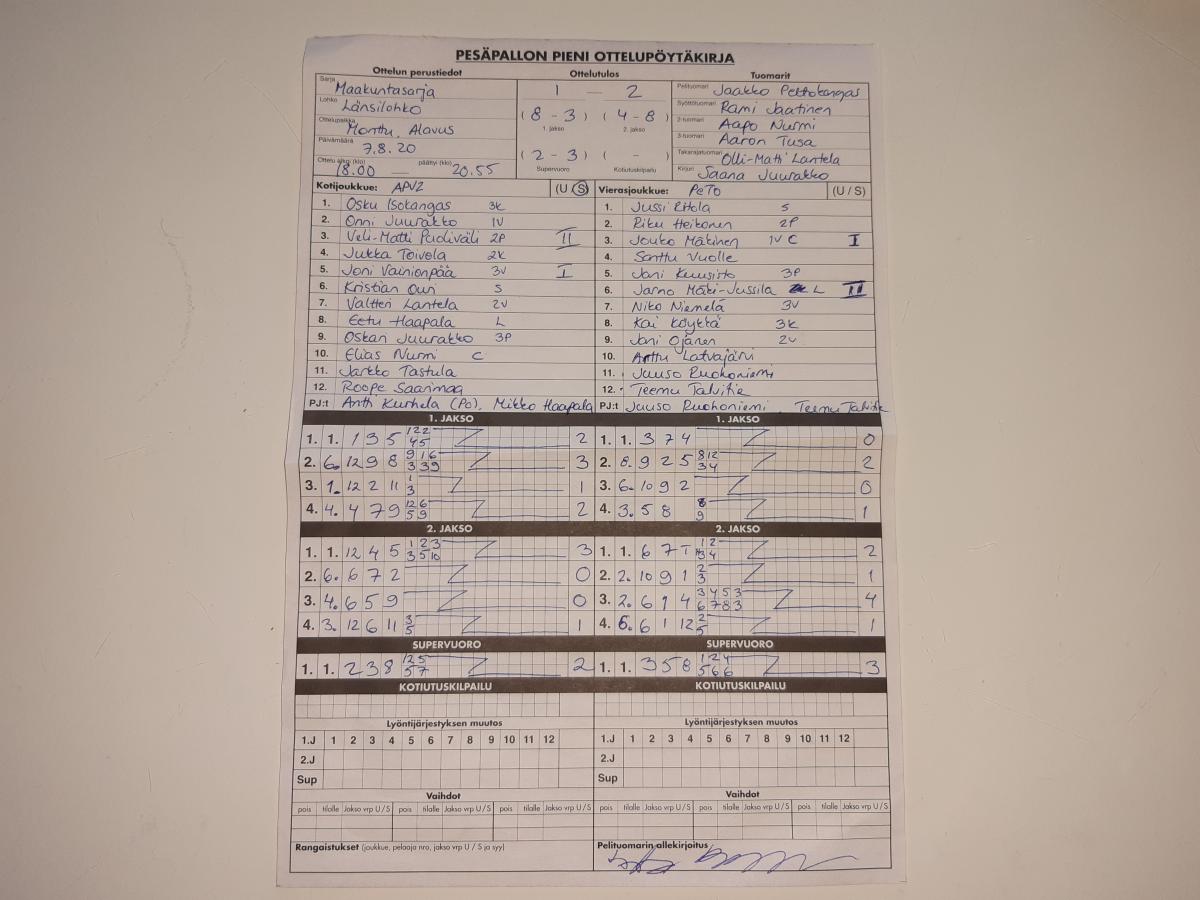 PESÄPALLON PIENI OTTELUPÖYTÄKIRJA
Ottelun perustiedot Ottelutulos Tuomarit
Sarja Maakuntasarja 1 – 2 Pelituomari Jaakko Peltokangas
Lohko Länsilohko (8 - 3) (4 - 8) Syöttötuomari Rami Jaatinen
Ottelupaikka Monttu, Alavus 1. jakso 2. jakso 2-tuomari Aapo Nurmi
Päivämäärä 7.8.20 3-tuomari Aaron Tusa
(2 - 3) ( - ) Takarajatuomari Olli-Matti Lantela
Ottelu alkoi (klo) 18.00 — päättyi (klo) 20.55 Supervuoro Kotiutuskilpailu Kirjuri Saana Juurakko
Kotijoukkue: APV2 (U / S) Vierasjoukkue: PeTo (U / S)
1. Osku Isokangas 3K 1. Jussi Ritola S
2. Onni Juurakko 1V 2. Riku Heikonen 2P
3. Veli-Matti Pudiväli 2P II 3. Jouko Mäkinen 1V C I
4. Jukka Toivola 2K 4. Santtu Vuolle
5. Joni Vainionpää 3V I 5. Jani Kuusisto 3P
6. Kristian Ouri S 6. Jarno Mäki-Jussila L II
7. Valtteri Lantela 2V 7. Niko Niemelä 3V
8. Eetu Haapala L 8. Kai Köykkä 3K
9. Oskari Juurakko 3P 9. Jani Ojanen 2V
10. Elias Nurmi C 10. Arttu Latvajärvi
11. Jarkko Tastula 11. Juuso Ruohoniemi
12. Roope Saarimaa 12. Teemu Talvitie
PJ:t Antti Kurhela (Po), Mikko Haapala PJ:t Juuso Ruohoniemi, Teemu Talvitie
1. JAKSO 1. JAKSO
1. 1. 1 3 5 122 45 2 1. 1. 3 7 4 0
2. 6. 12 9 8 916 339 3 2. 8. 9 2 5 812 34 2
3. 1. 12 2 11 1 3 1 3. 6. 10 9 2 0
4. 4. 4 7 9 126 59 2 4. 3. 5 8 8 9 1
2. JAKSO 2. JAKSO
1. 1. 12 4 5 123 3510 3 1. 1. 6 7 T 12 34 2
2. 6. 6 7 2 0 2. 2. 10 9 1 2 3 1
3. 4. 6 5 9 0 3. 2. 6 1 4 3453 6783 4
4. 3. 12 6 11 3 5 1 4. 6. 6 1 12 2 5 1
SUPERVUORO SUPERVUORO
1. 1. 2 3 8 125 57 2 1. 1. 3 5 8 124 566 3
KOTIUTUSKILPAILU KOTIUTUSKILPAILU
Lyöntijärjestyksen muutos Lyöntijärjestyksen muutos
1.J 1 2 3 4 5 6 7 8 9 10 11 12 1.J 1 2 3 4 5 6 7 8 9 10 11 12
2.J 2.J
Sup Sup
Vaihdot Vaihdot
pois tilalle Jakso vrp U / S pois tilalle Jakso vrp U / S pois tilalle Jakso vrp U / S pois tilalle Jakso vrp U / S
Rangaistukset (joukkue, pelaaja nro, jakso vrp U / S ja syy) Pelituomarin allekirjoitus